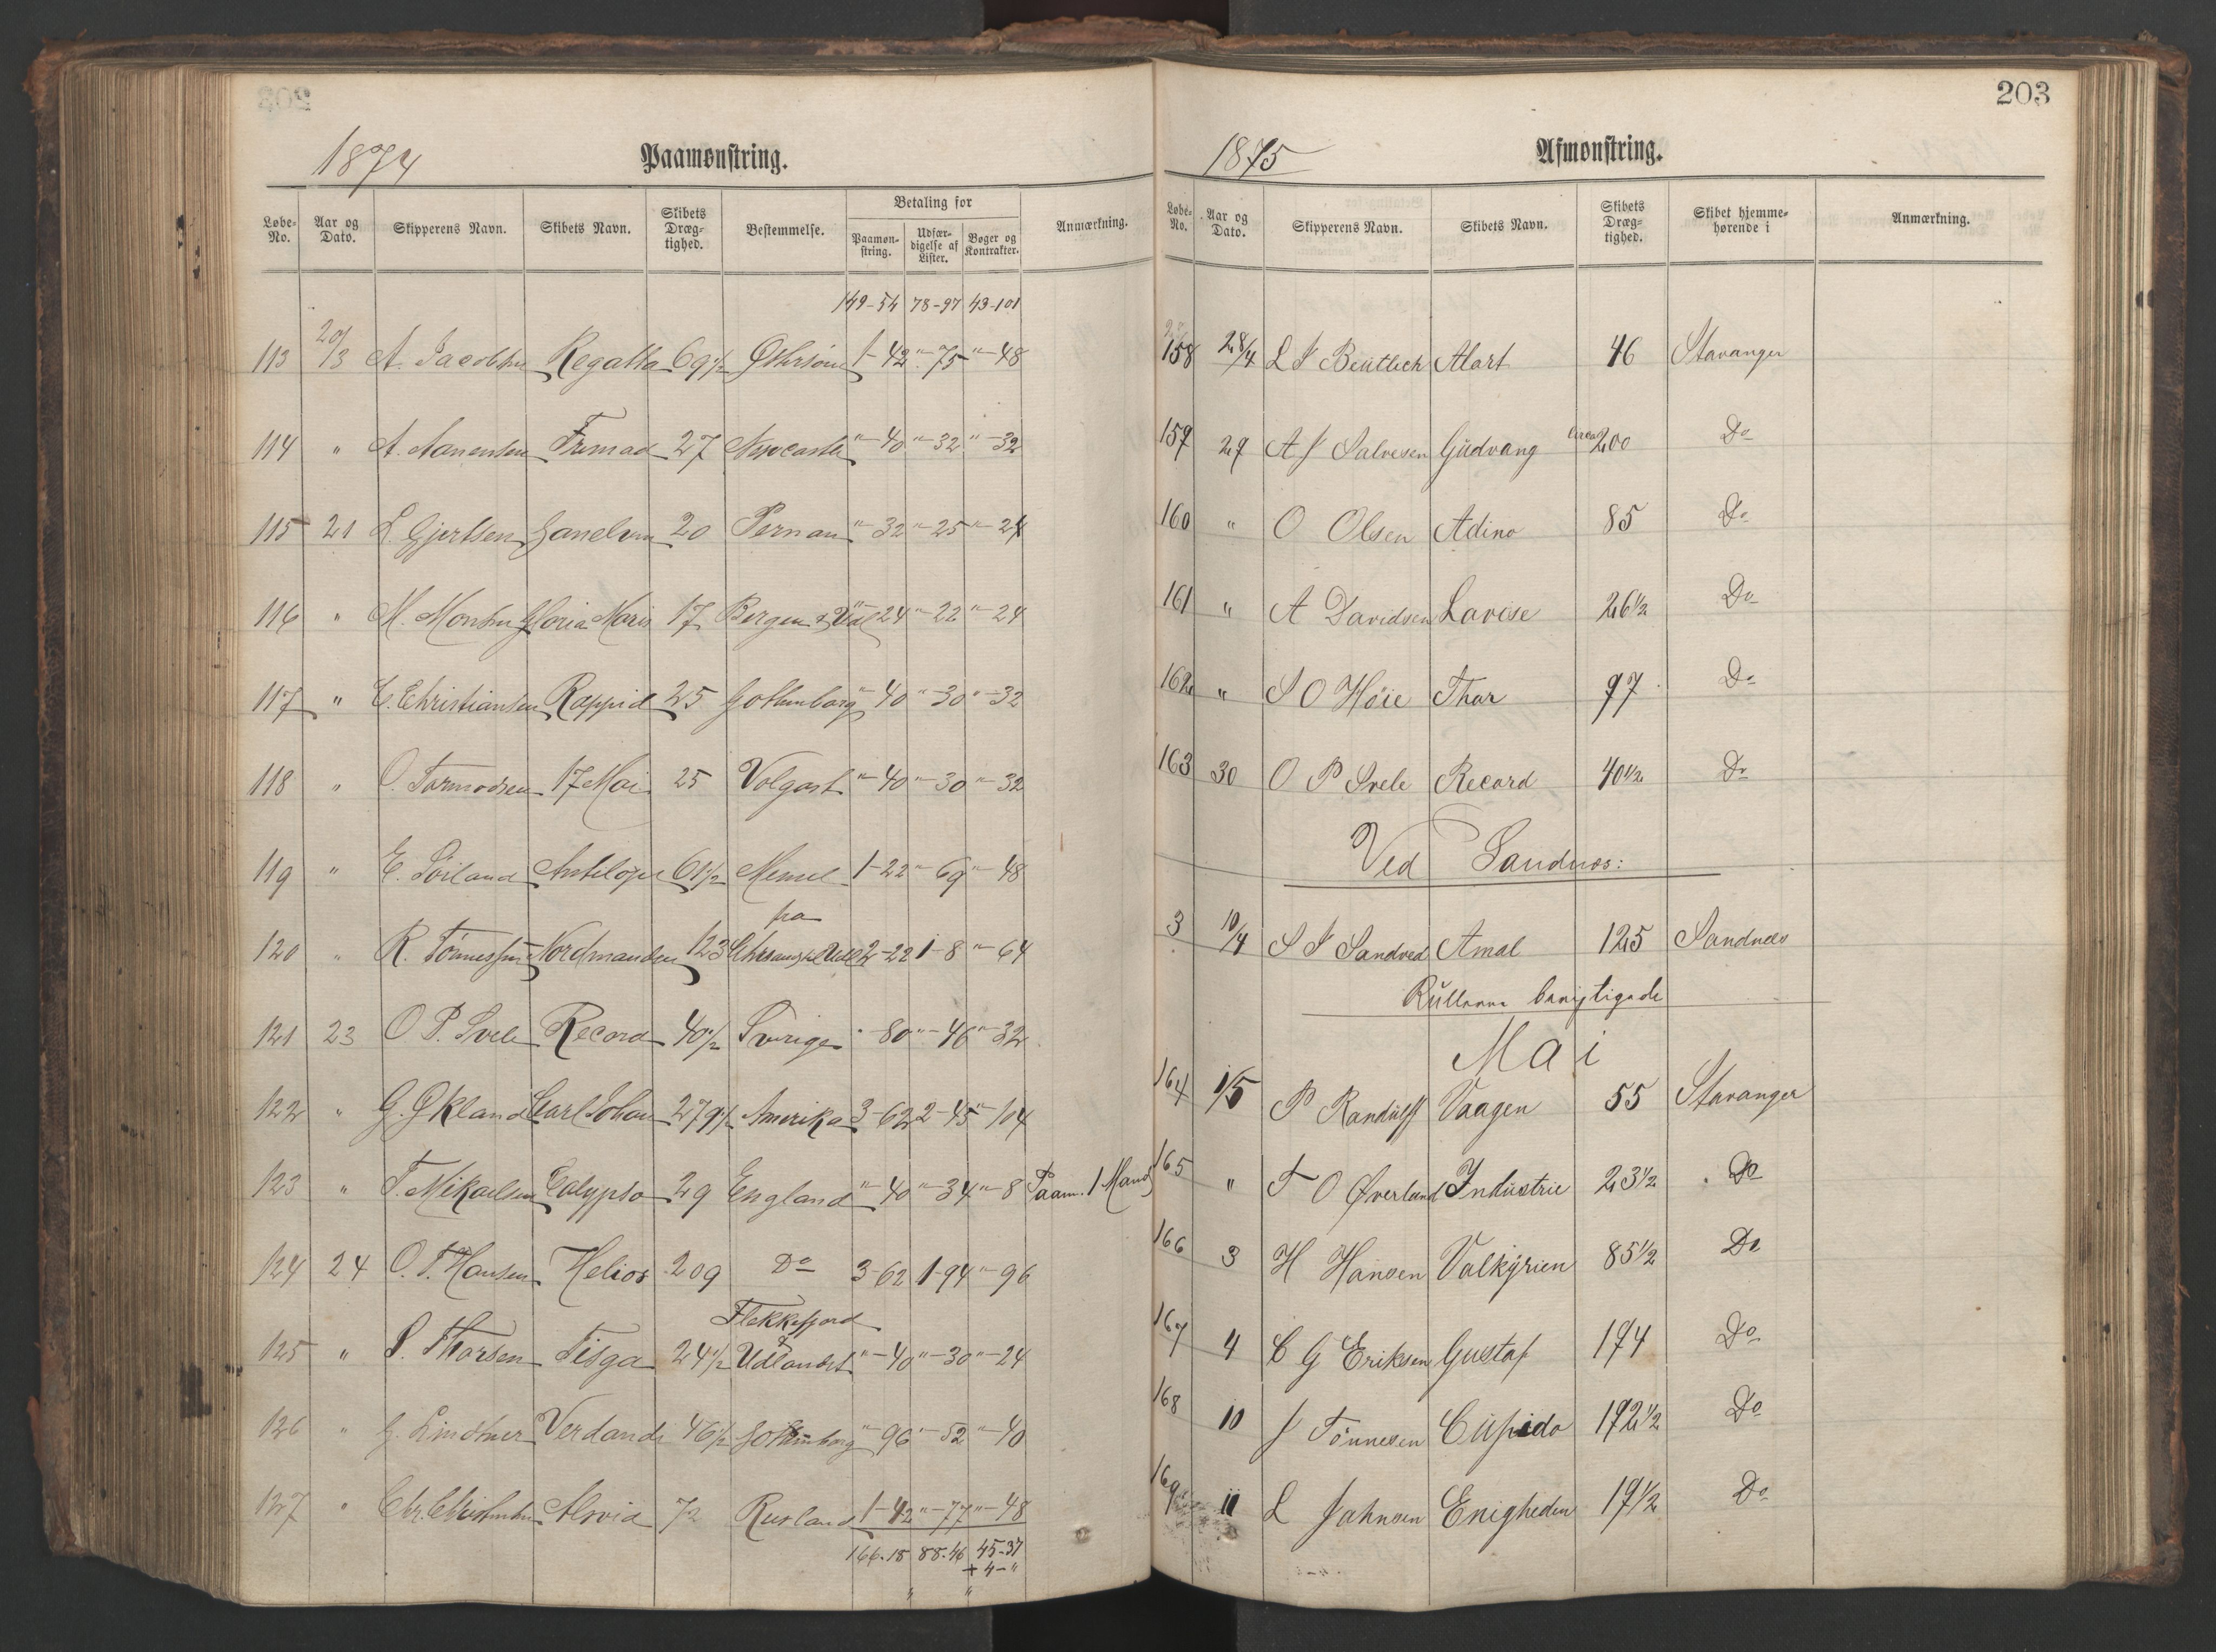 1874 Paamønstring.
Løbe-No. Aar og Dato. Skipperens Navn. Skibets Navn. Skibets Dræg-tighed. Bestemmelse. Betaling for Paamøn-string. Udfær-digelse af Lister. Bøger og Kontrakter. Anmærkning.
149-54 78-97 43-101
113 20/3 A. Jacobsen Regatta 69½ Østersøen 1-42 "-75 "-48
114 " A. Aanensen Fremad 27 Newcastle "-40 "-32 "-32
115 21 L. Gjertsen 20 Pernau "-32 "-25 "-24
116 " M. Gloria Maris 17 Bergen & Udl "24 "-22 "-24
117 " C. Christiansen Rappid 25 Gothenborg "-40 "-30 "-32
118 " O. Tormodsen 17 Mai 25 Volgast "-40 "-30 "-32
119 " E. Soiland Antilope 61½ Memel 1-22 "-69 "-48
fra
120 " R. Tönnessen Nordmanden 123 2-22 1-8 "-64
121 23 O P. Svele Record 40½ Sverige "-80 "-46 "-32
122 " G. Økland Carl Johan 279½ Amerika 3-62 2-45 "-104
123 " T. Mikaelsen Calypso 29 England "-40 "-34 "-8 Paam. 1 Mand
124 24 O. T. Hansen Helios 209 Do 3-62 1-94 "-96
Flekkefjord
125 " P. Thorsen Tisga 24½ & Udlandet "-40 "-30 "-24
126 " G. Lindtner Verdandi 46½ Gothenborg "-96 "-52 "-40
127 " Chr. Christensen 72 Rusland 1-42 "-77 "-48
166-18 88-46 45-37
+ 4-"
" "
203
1875 Afmønstring.
Løbe-No. Aar og Dato. Skipperens Navn. Skibets Navn. Skibets Dræg-tighed. Skibet hjemme-hørende i Anmærkning.
158 28/4 L J Bentlech Alart 46 Stavanger
159 29 A J Salvesen Gudvang circa 200 Do
160 " O Olsen Adino 85 Do
161 " A Davidsen Lovise 26½ Do
162 " S O Höie Thor 97 Do
163 30 O P Svele Record 40½ Do
Ved Sandnæs:
3 10/4 S J Sandved Amal 125 Sandnæs
Rullerne
Mai
164 1/5 P Randulff Vaagen 55 Stavanger
165 " T O Øverland Industrie 23½ Do
166 3 H Hansen Valkyrien 85½ Do
167 4 C G Eriksen Gustaf 194 Do
168 10 J Tönnesen Cupido 192½ Do
169 11 L Johnsen Enigheden 19½ Do